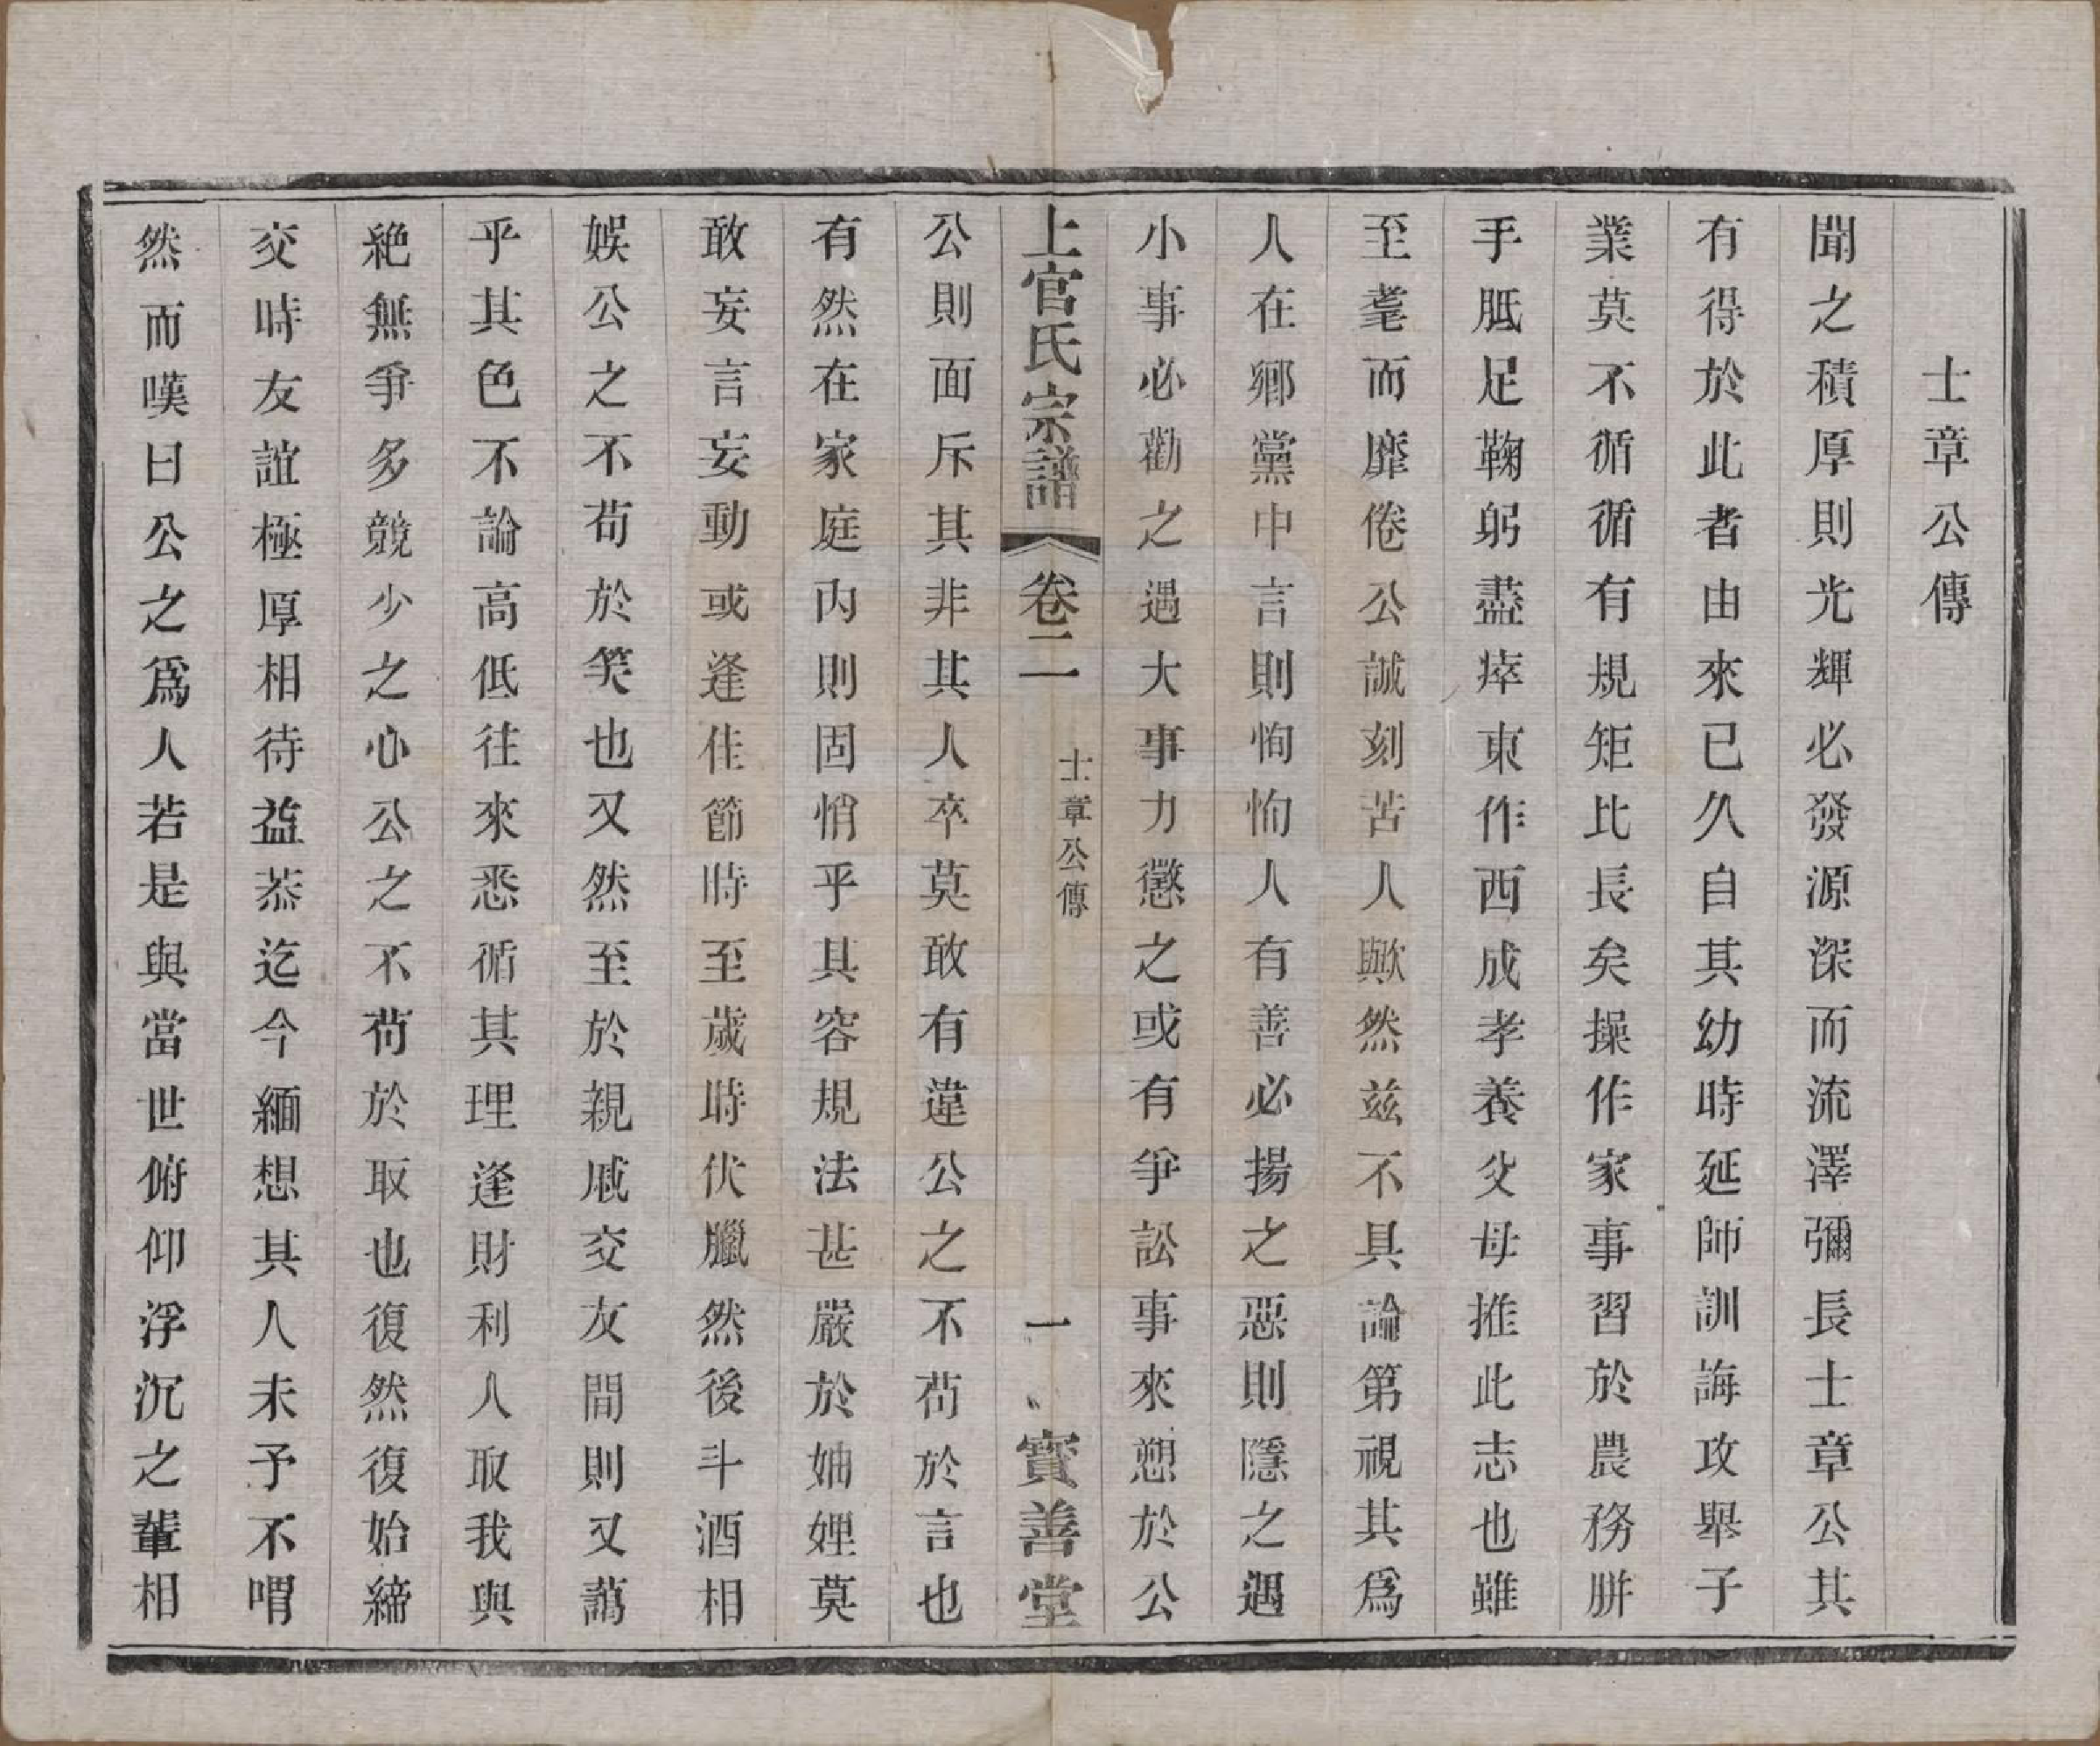 士章公傳
聞之積厚則光輝必發源深而流澤彌長士章公其
有得於此者由來已久自其幼時延師訓誨攻舉子
業莫不循循有規矩比長矣操作家事習於農務胼
手胝足鞠躬盡瘁東作西成孝養父母推此志也雖
至耄而靡倦公誠刻苦人歟然兹不具論第視其爲
人在鄉黨中言則恂恂人有善必揚之惡則隱之遇
小事必勸之遇大事力懲之或有爭訟事來愬於公
上官氏宗譜 卷二 士章公傳 一 寳善堂
公則面斥其非其人卒莫敢有違公之不苟於言也
有然在家庭內則固悄乎其容規法甚嚴於妯娌莫
敢妄言妄動或逢佳節時至歲時伏臘然後斗酒相
娛公之不苟於笑也又然至於親戚交友間則又藹
乎其色不論高低往來悉循其理逢財利人取我與
絕無爭多競少之心公之不苟於取也復然復始締
交時友誼極厚相待益恭迄今緬想其人未予不喟
然而嘆曰公之爲人若是與當世俯仰浮沉之輩相